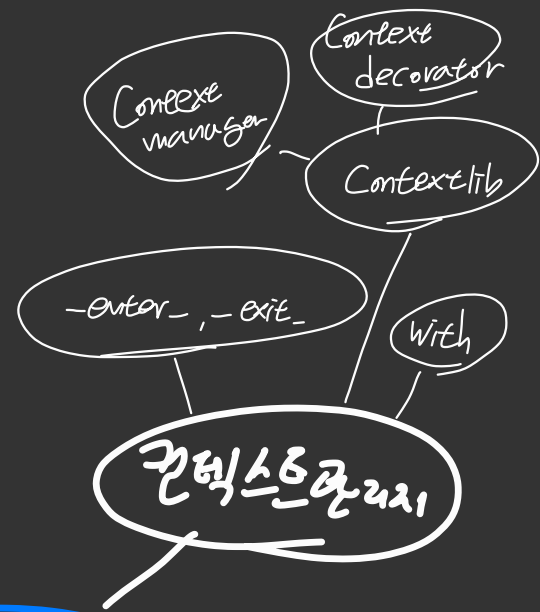 Context
decorator
Context
manager
Contextlib
_enter_, _exit_
with
컨텍스트관리자